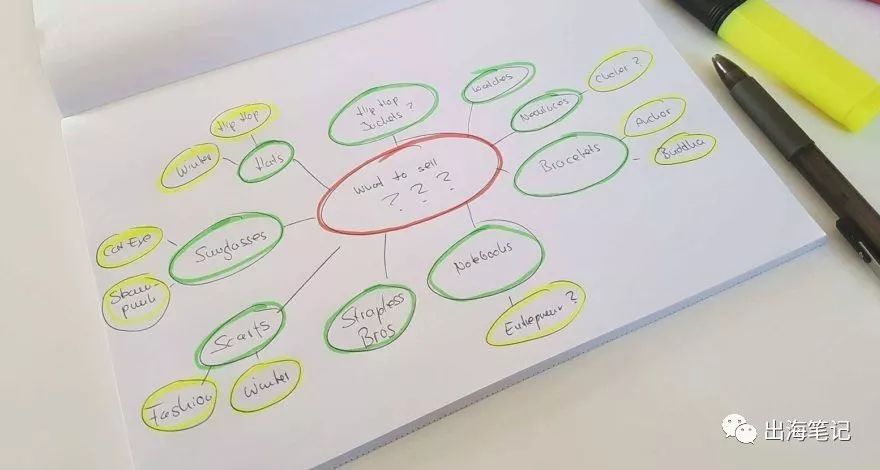 Hip Hop
Jackets ?
Watches
Necklaces
Choker ?
Hip Hop
Winter
Hats
What to sell
? ? ?
Bracelets
Anchor
Buddha
Cat Eye
Sunglasses
Steam-
punk
Notebooks
Entrepreneur ?
Strapless
Bras
Scarfs
Fashion
Winter
出海笔记